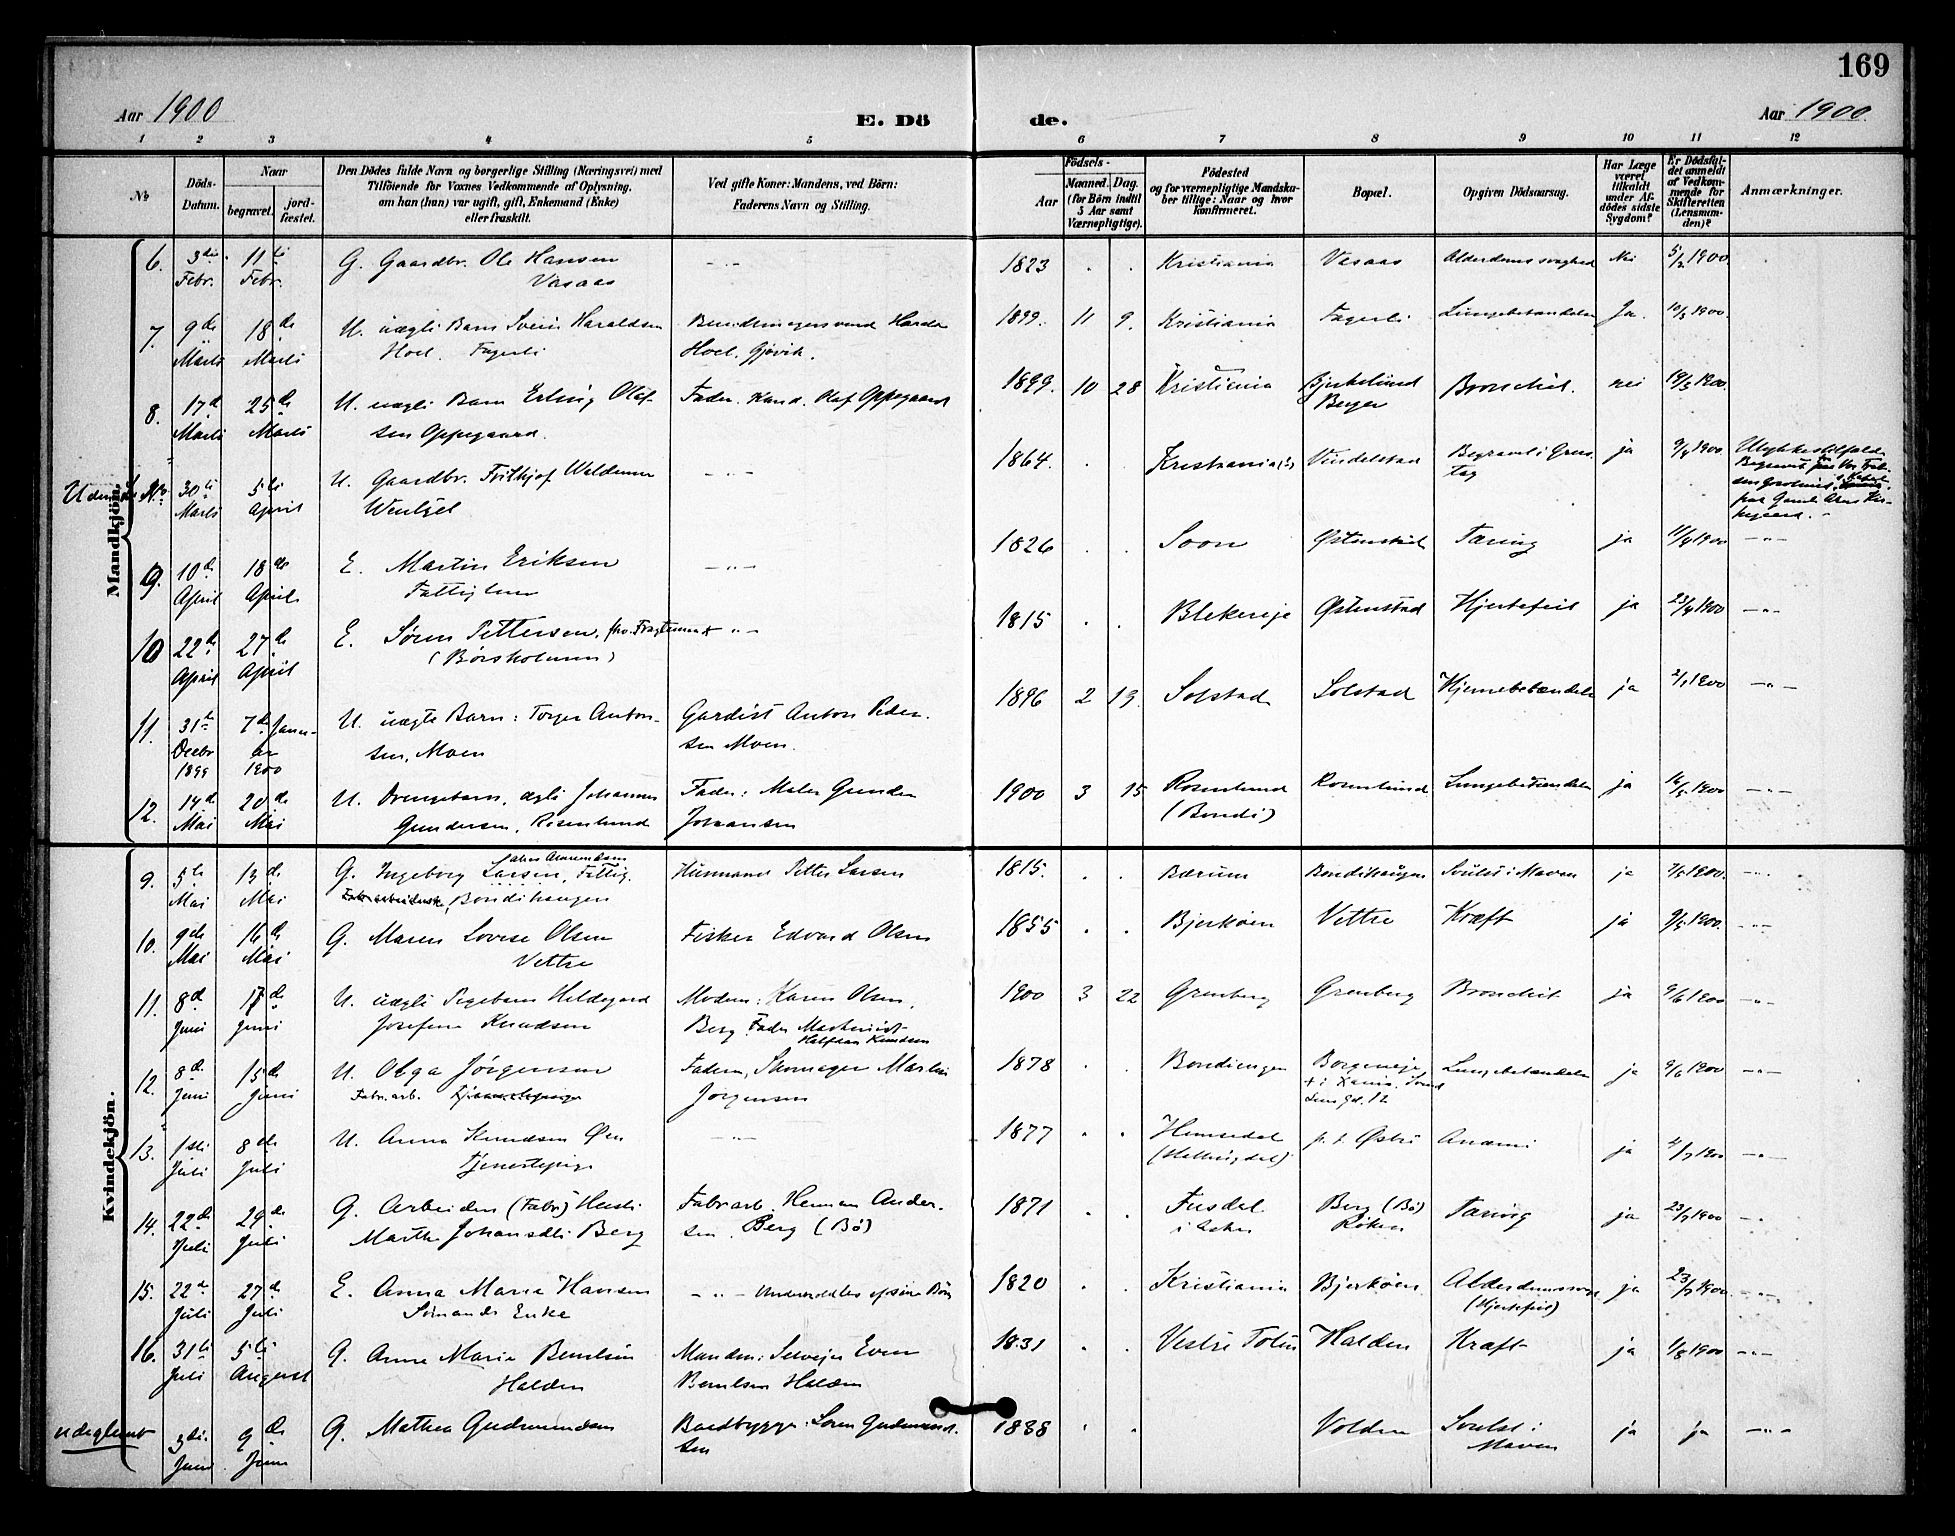 169
Aar 1900
E. Dö
de.
Aar 1900
1 2 3 4 5 6 7 8 9 10 11 12
No
Döds-
Datum.
Naar
begravet.
jord-
fæstet.
Den Dödes fulde Navn og borgerlige Stilling (Næringsvei) med
Tilföiende for Voxnes Vedkommende af Oplysning,
om han (hun) var ugift, gift, Enkemand (Enke)
eller fraskilt.
Ved gifte Koner: Mandens, ved Börn:
Faderens Navn og Stilling.
Födsels-
Aar
Maaned. Dag.
(for Börn indtil
5 Aar samt
Værnepligtige).
Födested
og for værnepligtige Mandska-
ber tillige: Naar og hvor
konfirmeret.
Bopæl.
Opgiven Dödsaarsag.
Har Læge
været
tilkaldt
under Af-
dödes sidste
Sygdom?
Er Dödsfal-
det anmeldt
af Vedkom-
mende for
Skifteretten
(Lensman-
den)?
Anmærkninger.
Mandkjön.
6. 3die Febr. 11te Febr. G. Gaardbr. Ole Hansen
Vasaas
1823 Kristiania Vasaas Alderdomssvaghed Nei 5/2 1900
7. 9de Marts 18de Marts U. uægte Barn Svein Haraldsen
Hoel. Fagerli
Hoel. Gjøvik.
1899. 11 9. Kristiania Fagerli Lungebetændelse Ja. 10/3 1900.
8. 17de Marts 25de Marts U. uægte Barn Erling Olaf-
sen Oppegaard.
Fader. Kand. Olaf Oppegaard
1899. 10 28 Kristiania Bjerkelund
Berger
Bronchit. nei 19/3 1900.
Uden No 30te Marts 5te April U. Gaardbr. Frithjof Waldemar
Wentzel
1864. Kristiania Vindelstad ja 9/4 1900 Ulykkestilfælde
9. 10de April 18de April E. Martin Eriksen
Fattiglem
1826 Soon Østenstad Tæring ja 11/4 1900
10 22de April 27de April E. Søren Pettersen, fhv. Fragtemand
(Børsholmen)
1815 Blekereje Østenstad Hjertefeil ja 23/4 1900
11. 31te Decbr 1899 7de Janu-
ar
1900
U. uægte Barn: Torger Anton-
sen, Moen
Gardist Anton Peder-
sen Moen.
1896 2 19. Solstad Solstad Hjernebetændelse ja 2/1 1900
12. 14de Mai 20de Mai U. Drengebarn, ægte Johannes
Gundersen, Rosenlund
Fader: Maler Gunder
Johansen
1900 3 15 Rosenlund
(Bondi)
Rosenlund Lungebetændelse ja 16/5 1900
Kvindekjön.
9. 5te Mai 13de Mai G. Ingeborg Larsen, Fattig.
Bondihaugen
Husmand Petter Larsen
1815. Bærum Bondihaugen Svulst i Maven ja 7/5 1900.
10. 9de Mai 16de Mai G. Maren Lovise Olsen
Vettre
Fisker Edvard Olsen
1855 Bjerkøen Vettre Kræft ja 9/5 1900.
11. 8d Juni 17de Juni U. uægte Pigebarn Hildegard
Josefine Knudsen
Modern: Karen Olsen,
Berg. Fader Maskinist
Halfdan Knudsen
1900 3 22 Grønberg Grønberg Bronchit ja 9/6 1900
12. 8de Juni 15de Juni U. Olga Jörgensen
Fabr. arb.
Faderen, Skomager Martin
Jørgensen
1878 Bondiengen Borgenveje
Lungebetændelse ja 9/6 1900
13. 1ste Juli 8de Juli U. Anna Knudsen Øen
Tjenestepige
1877 Hemsedal
(Hallingdal)
p. t. Østre Anæmi ja 4/7 1900
14. 22de Juli 29de Juli G. Arbeider (Fabr.) Hustr.
Marthe Johansdtr Berg
Fabrarb. Herman Ander-
sen. Berg (Bö)
1871 Fusdal
i Asker
Berg (Bö)
Röken
Tæring ja 23/7 1900
15. 22de Juli 27de Juli E. Anna Maria Hansen
Sömands Enke
Underholdtes af sine Börn
1820 Kristiania Bjerkøen Alderdomssvag.
(Hjertefeil)
ja 23/7 1900
16. 31te Juli 5te August G. Anne Marie Bentsen
Halden
Manden: Selveier Even
Berntsen Halden
1831 Vestre Toten Halden Kræft ja 1/8 1900
udeglemt 3die Juni 9de Juni G. Mathea Gudmundsen
Baadbygger Søren Gudmund-
sen
1838 Volden Svulst i
Maven
ja ja